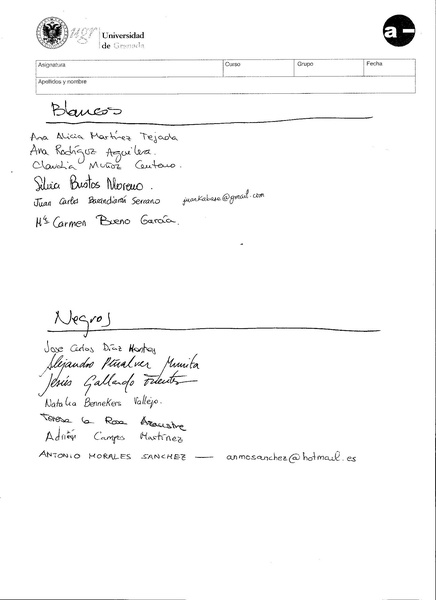 ugr Universidad
de Granada
a-
Asignatura Curso Grupo Fecha
Apellidos y nombre
Blancos
Ana Alicia Martínez Tejada
Ana Rodríguez Aguilera.
Claudia Muñoz Centeno.
Silvia Bustos Moreno.
Juan Carlos Serrano juankabase@gmail.com
Mª Carmen Bueno García.
Negros
Jose Carlos Díaz
Alejandro Peñalver Munita
Jesús Gallardo Fuentes
Natalia Bennekers Vallejo.
Teresa la Rosa
Adrián Campos Martínez
ANTONIO MORALES SANCHEZ — anmosanchez@hotmail.es